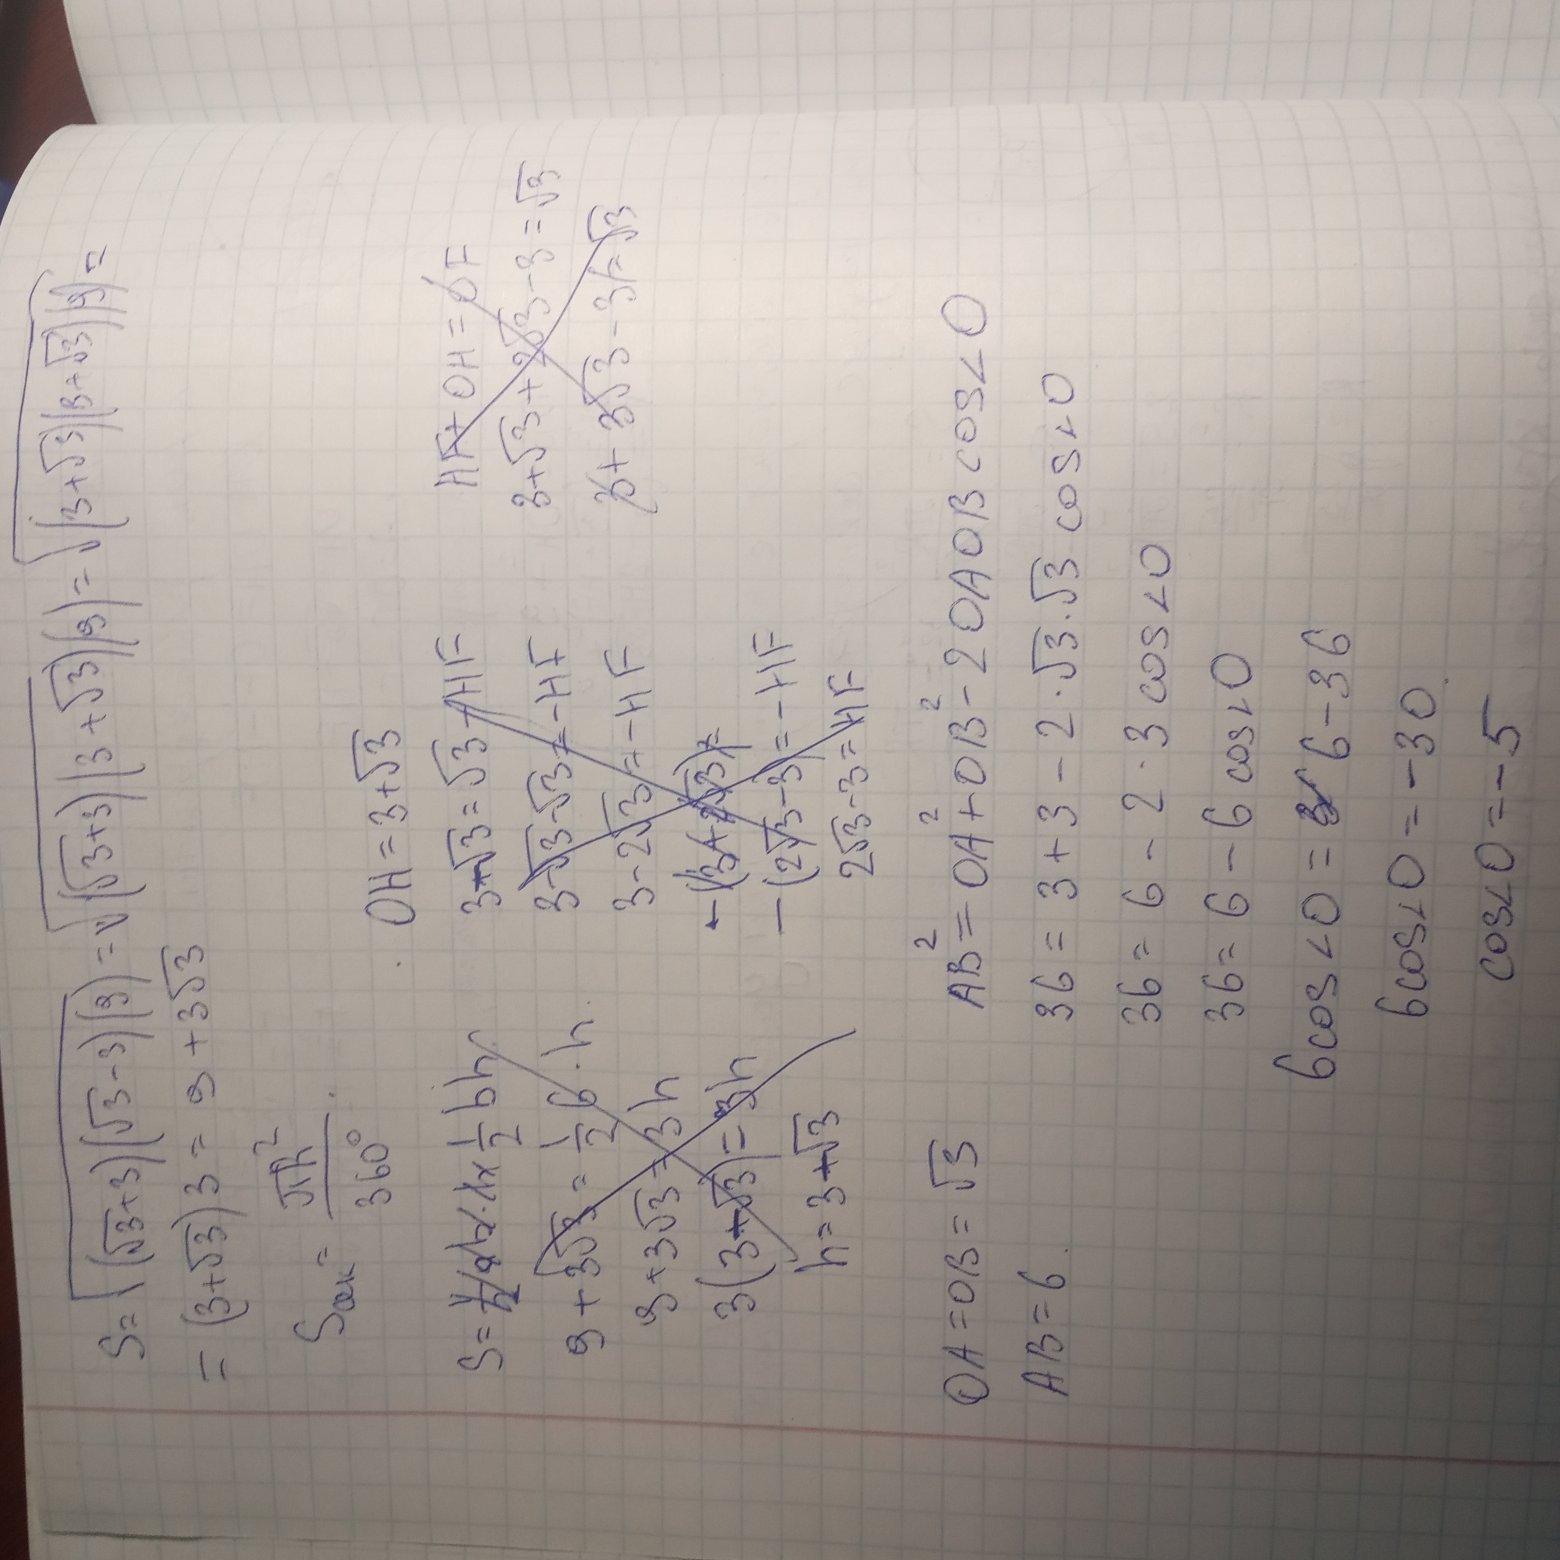 S=√(√3+3)(√3-3)(9)=√(√3+3)(3+√3)(9)=√(3+√3)(3+√3)(9)=
=(3+√3)3=9+3√3
Sок=πR²/360°
S=1/2bh
9+3√3=1/2 6·h
9+3√3=3h
3(3+√3)=3h
h=3+√3
OH=3+√3
3+√3=√3+HF
3-√3-√3=-HF
3-2√3=-HF
-(2√3-3)=-HF
2√3-3=HF
HF+OH=OF
3+√3+2√3-3=√3
3+3√3-3=√3
OA=OB=√3
AB=6
AB²=OA²+OB²-2OAOBcos<O
36=3+3-2·√3·√3cos<O
36=6-2·3cos<O
36=6-6cos<O
6cos<O=6-36
6cos<O=-30
cos<O=-5